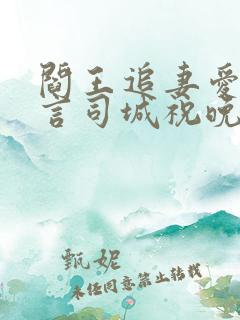 閻王追妻愛
言司城祝晚
甄妮
未经同意禁止转载